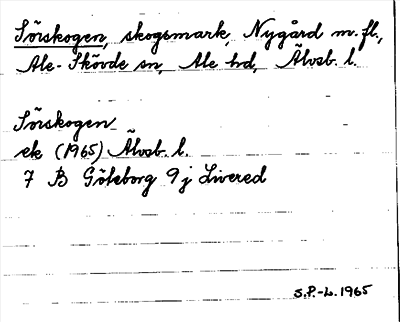 Sörskogen, skogsmark, Nygård m. fl.,
Ale-Skövde sn, Ale hd, Älvsb. l.
Sörskogen
ek (1965) Älvsb. l.
7 B Göteborg 9 j Livered
S.P.-L. 1965